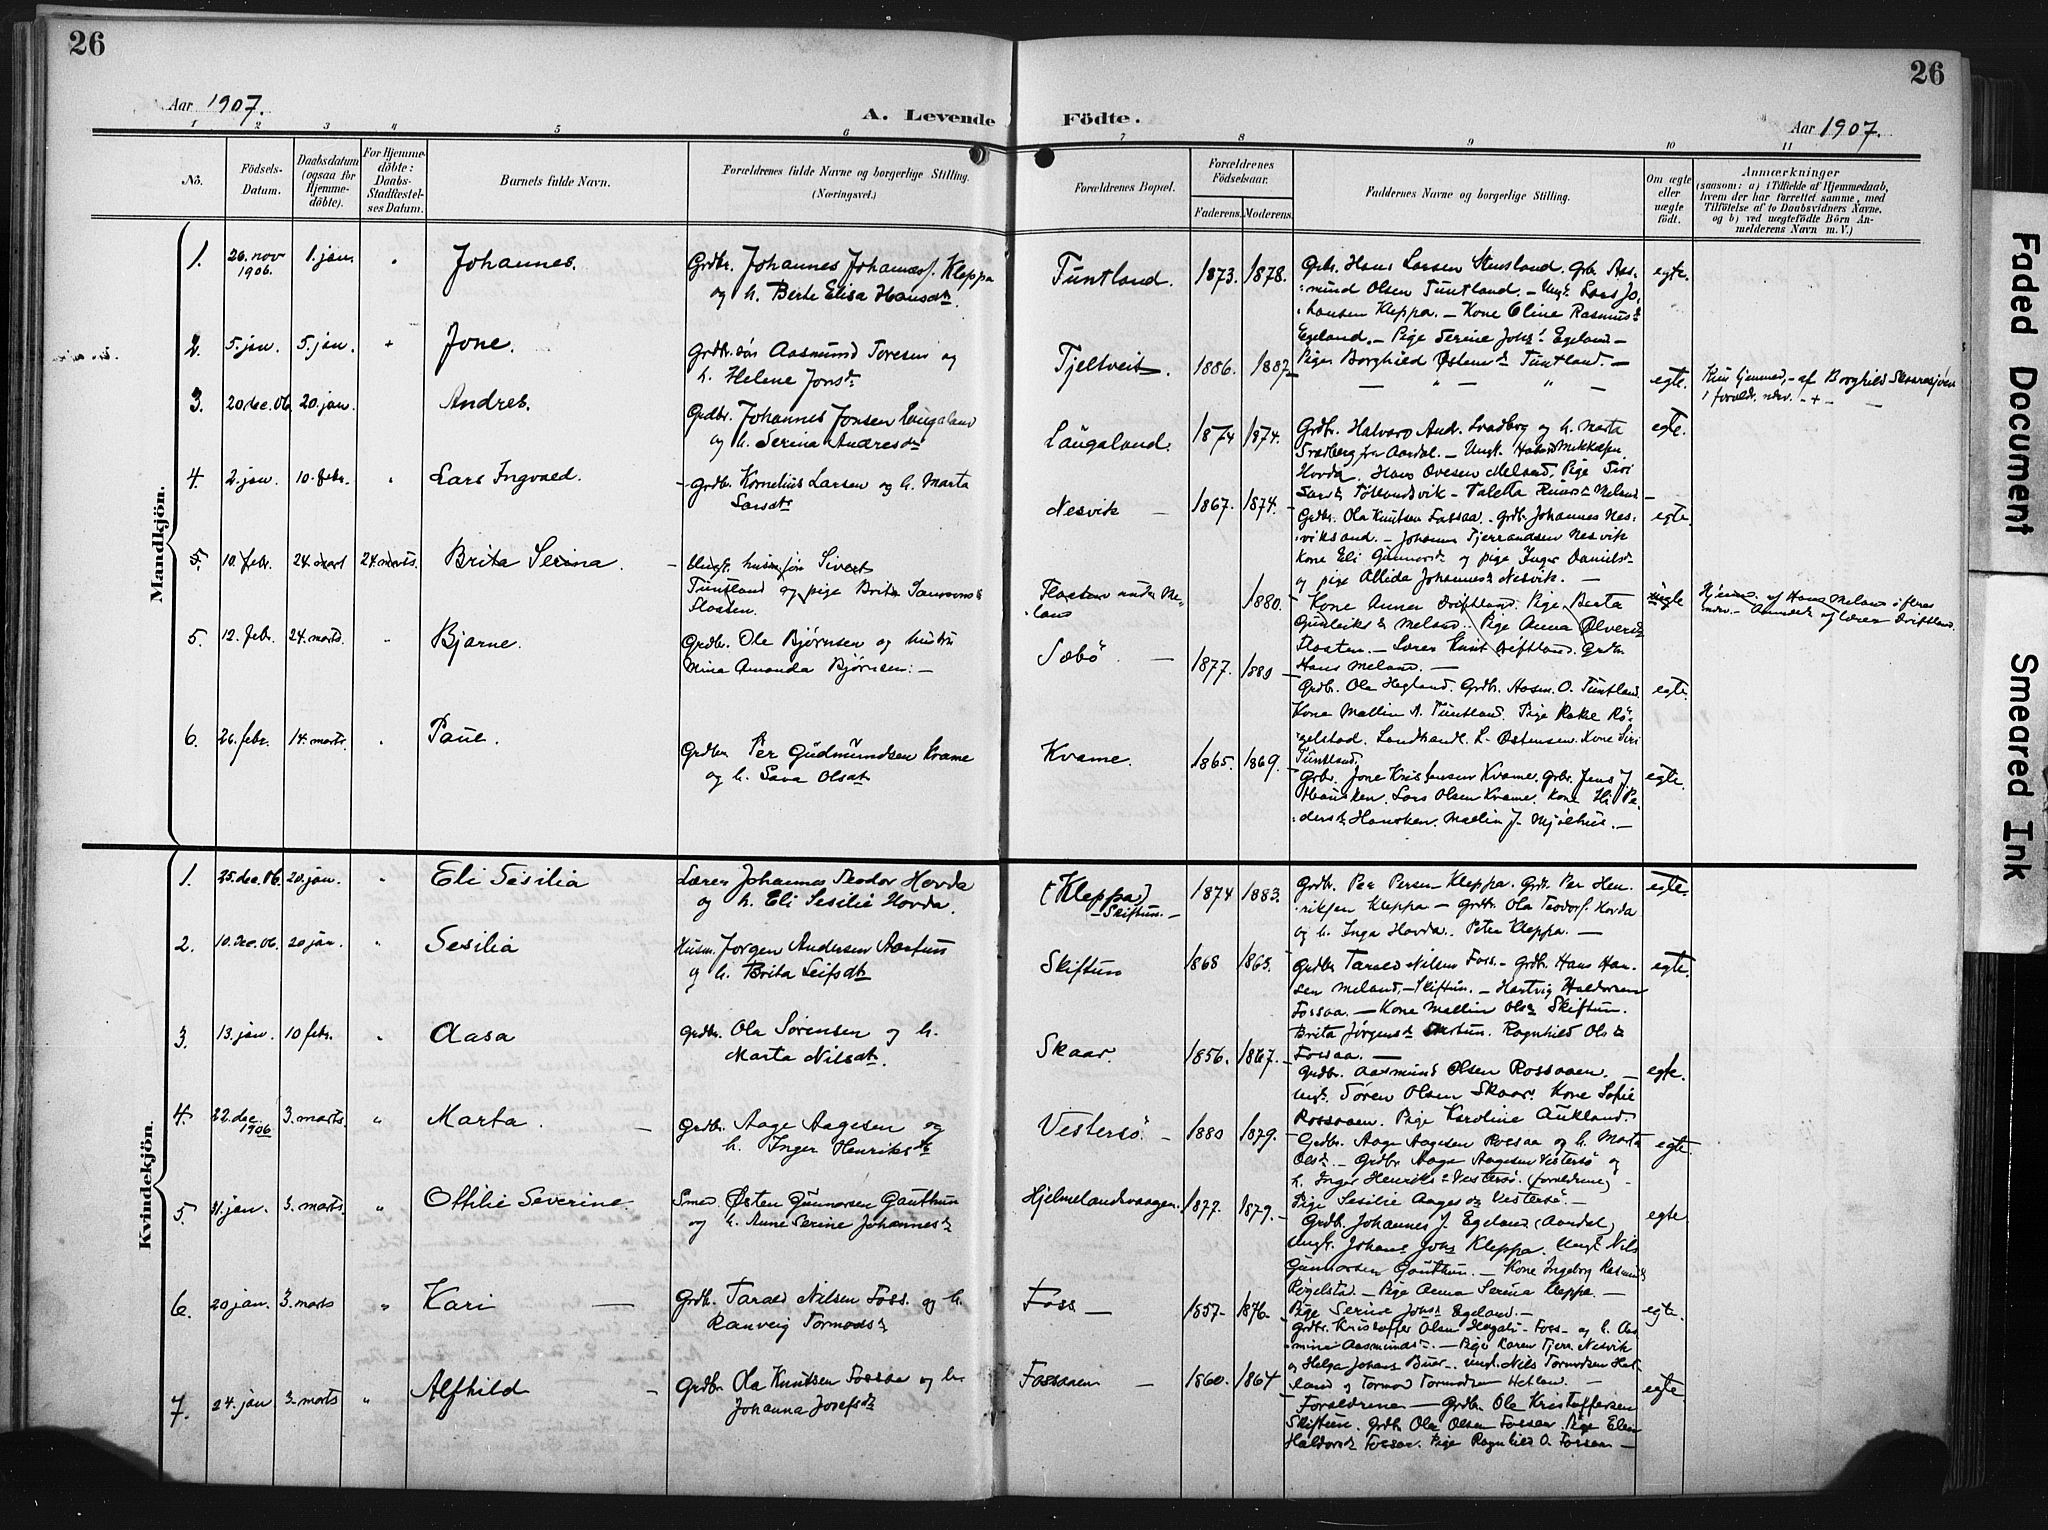 26
26
Aar 1907.
A. Levende Födte.
Aar 1907.
1 2 3 4 5 6 7 8 9 10 11
No.
Födsels-Datum.
Daabsdatum (ogsaa for Hjemmedöbte).
For Hjemmedöbte: Daabs-Stadfæstelses Datum.
Barnets fulde Navn.
Forældrenes fulde Navne og borgerlige Stilling. (Næringsvei.)
Forældrenes Bopæl.
Forældrenes Födselsaar.
Faderens. Moderens.
Faddernes Navne og borgerlige Stilling.
Om ægte eller uægte födt.
Anmærkninger
(saasom: a) i Tilfælde af Hjemmedaab, hvem der har forrettet samme, med Tilföielse af to Daabsvidners Navne, og b) ved uægtefödte Börn Anmelderens Navn m. V.)
Mandkjön.
1. 26. nov 1906. 1. jan. " Johannes. Grdbr. Johannes Johanness. Kleppa
og h. Berte Elisa Hansdt. Tuntland. 1873. 1878. Grbr. Hans Larsen Stensland. Grb. Aas-
mund Olsen Tuntland. – Ungk. Lars Jo-
hansen Kleppa. – Kone Eline Rasmusd.
Egeland. – Pige Serine Johs. Egeland –
Pige Borghild Østensd. Tuntland. – egte.
2. 5. jan. 5. jan. + Jone. Grdbr. søn Aasmund Toresen og
h. Helene Jonsd. Tjeltveit. 1886. 1887 – " " – egte. af Borghild
3. 20 dec. 06. 20. jan. Andreas. Grdbr. Johannes Jonsen Laugaland
og h. Serina Andresdt. Laugaland. 1874 1874. Grdbr. Halvard Andr. Svadberg og h. Marta
Svadberg fra Aardal. – Ungk. Mikkelsen
Hovda. Hans Ovesen Meland. Pige Siri
Meland – egte.
4. 2. jan. 10. febr. " Lars Ingvald. – Grdbr. Kornelius Larsen og h. Marta
Larsdt. Nesvik – 1867. 1874. Grdbr. Ola Knutsen Fossaa. Grdbr. Johannes Nes-
viksand. – Johannes Tjerrandsen Nesvik
Kone Eli Gunnarsd. og pige Inger Danielsd.
og pige Allida Johannesd. Nesvik. – egte.
5. 10. febr. 24. mart 24. marts. Brita Serina. – Ungk. Sivert
Tuntland og pige Brita
Flaaten. Flaaten under Me-
land 1880. Kone Anna Driftland. Pige Berta
Gunleiksd. Meland. Pige Anna Ølversd.
Flaaten. – Lærer Knut Driftland. Grdbr.
Hans Meland. – uegte Hjemd. af Hans Meland
5. 12. febr. 24. marts " Bjarne. Grdbr. Ole Bjørnsen og hustru
Nina Amanda Bjørnsen. – Sæbö – 1877. 1880 Grdbr. Ola Hegland. Grdbr. Aasm. O. Tuntland
Kone Mallin A. Tuntland. Pige Rakel Rö-
gelstad. Landhandl. L. Østensen. Kone Siri
Tuntland. egte.
6. 26. febr. 14. marts. " Paul. Grdbr. Per Gudmundsen Kvame
og h. Sara Olsdt. Kvame. 1865. 1869. Grbr. Jone Kristensen Kvame. Grbr. Jens J.
Hausken. Lars Olsen Kvame. Kone Eli Pe-
dersd. Hausken. Mallin J. Mjölhus. – egte.
Kvindekjön.
1. 25. dec. 06. 20. jan. " Eli Sesilia Lærer Johannes Teodor Hovda
og h. Eli Sesilie Hovda. (Kleppa)
– Skiftun. – 1874 1883. Grdbr. Per Persen Kleppa. Grdbr. Per Hen-
riksen Kleppa – Grdbr. Ola Teodors. Hovda
og h. Inga Hovda. Peter Kleppa. – egte.
2. 10. dec. 06. 20 jan. " Sesilia Husm. Jorgen Andersen
og h. Brita Leifsdt. Skiftun 1868 1865. Grdbr. Tarald Nilsen Foss. – Grdbr. Hans Han-
sen Meland, – Skiftun. – Hartvig Haldorsen
Fossaa. – Kone Mallin Olsd. Skiftun.
Brita Jörgensd. Ragnhild Olsd.
Fossaa. – egte.
3. 13. jan. 10 febr. " Aasa Grdbr. Ola Sørensen og h.
Marta Nilsdt. Skaar. 1856. 1867. Grdbr. Aasmund Olsen Rossaaen. –
Ungk. Sören Olsen Skaar. Kone Sofie
Rossaaen. Pige Karoline Aukland. egte.
4. 22. dec. 1906 3. marts. " Marta. – Grdbr. Aage Aagesen og
h. Inger Henriksdt. Vestersö. – 1880 1879. Grdbr. Aage Aagesen Fossaa og h. Marta
Olsd. – Grdbr. Aage Aagesen Vestersö og
h. Inger Henriksd. Vestersö. (forældrene) –
Pige Sesilie Aagesd. Vestersö. – egte.
5. 31. jan. 3. marts. " Ottilie Severine. Smed Østen Gunnarsen Gauthun
og h. Anne Serine Johannesd. Hjelmelandsvaagen. 1877. 1879. Grdbr. Johannes J. Egeland (Aardal)
Ungk. Johans Johs. Kleppa. Ungk. Nils
Gunnarsen Gauthun. – Kone Ingeborg Rasmusd.
Rögelstad. – Pige Anna Serina Kleppa. –
Pige Serine Johs. Egeland. – egte.
6. 20 jan. 3. marts " Kari – Grdbr. Tarald Nilsen Foss. og h.
Ranveig Tormodsd. Foss – 1857. 1876. Grdbr. Kristoffer Olsen – Foss – og h. Aas-
mine Aasmundsd. – Pige Karen Tjerr. Nesvik
og Helga Johans Buer. Ungk. Nils Tormodsen Het-
land og Tormod Tormodsen Hetland. – egte.
7. 24. jan 3. marts " Alfhild – Grdbr. Ola Knutsen Fossaa og h.
Johanna Josefsd. Fossaaen – 1860. 1864 – Forældrene – Grdbr. Ole Kristoffersen
Skiftun. Grdbr. Ola Olsen Fossaa. Pige Elen
Haldorsd. Fossaa. Pige Ragnhild O. Fossaa – egte.
Faded Document
Smeared Ink